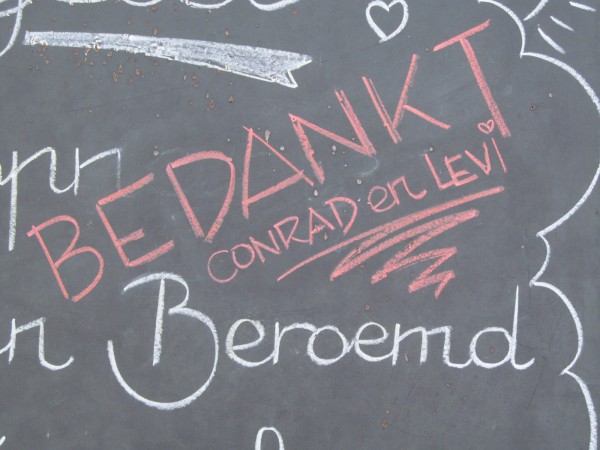 BEDANKT
CONRAD en LEVI
Beroemd